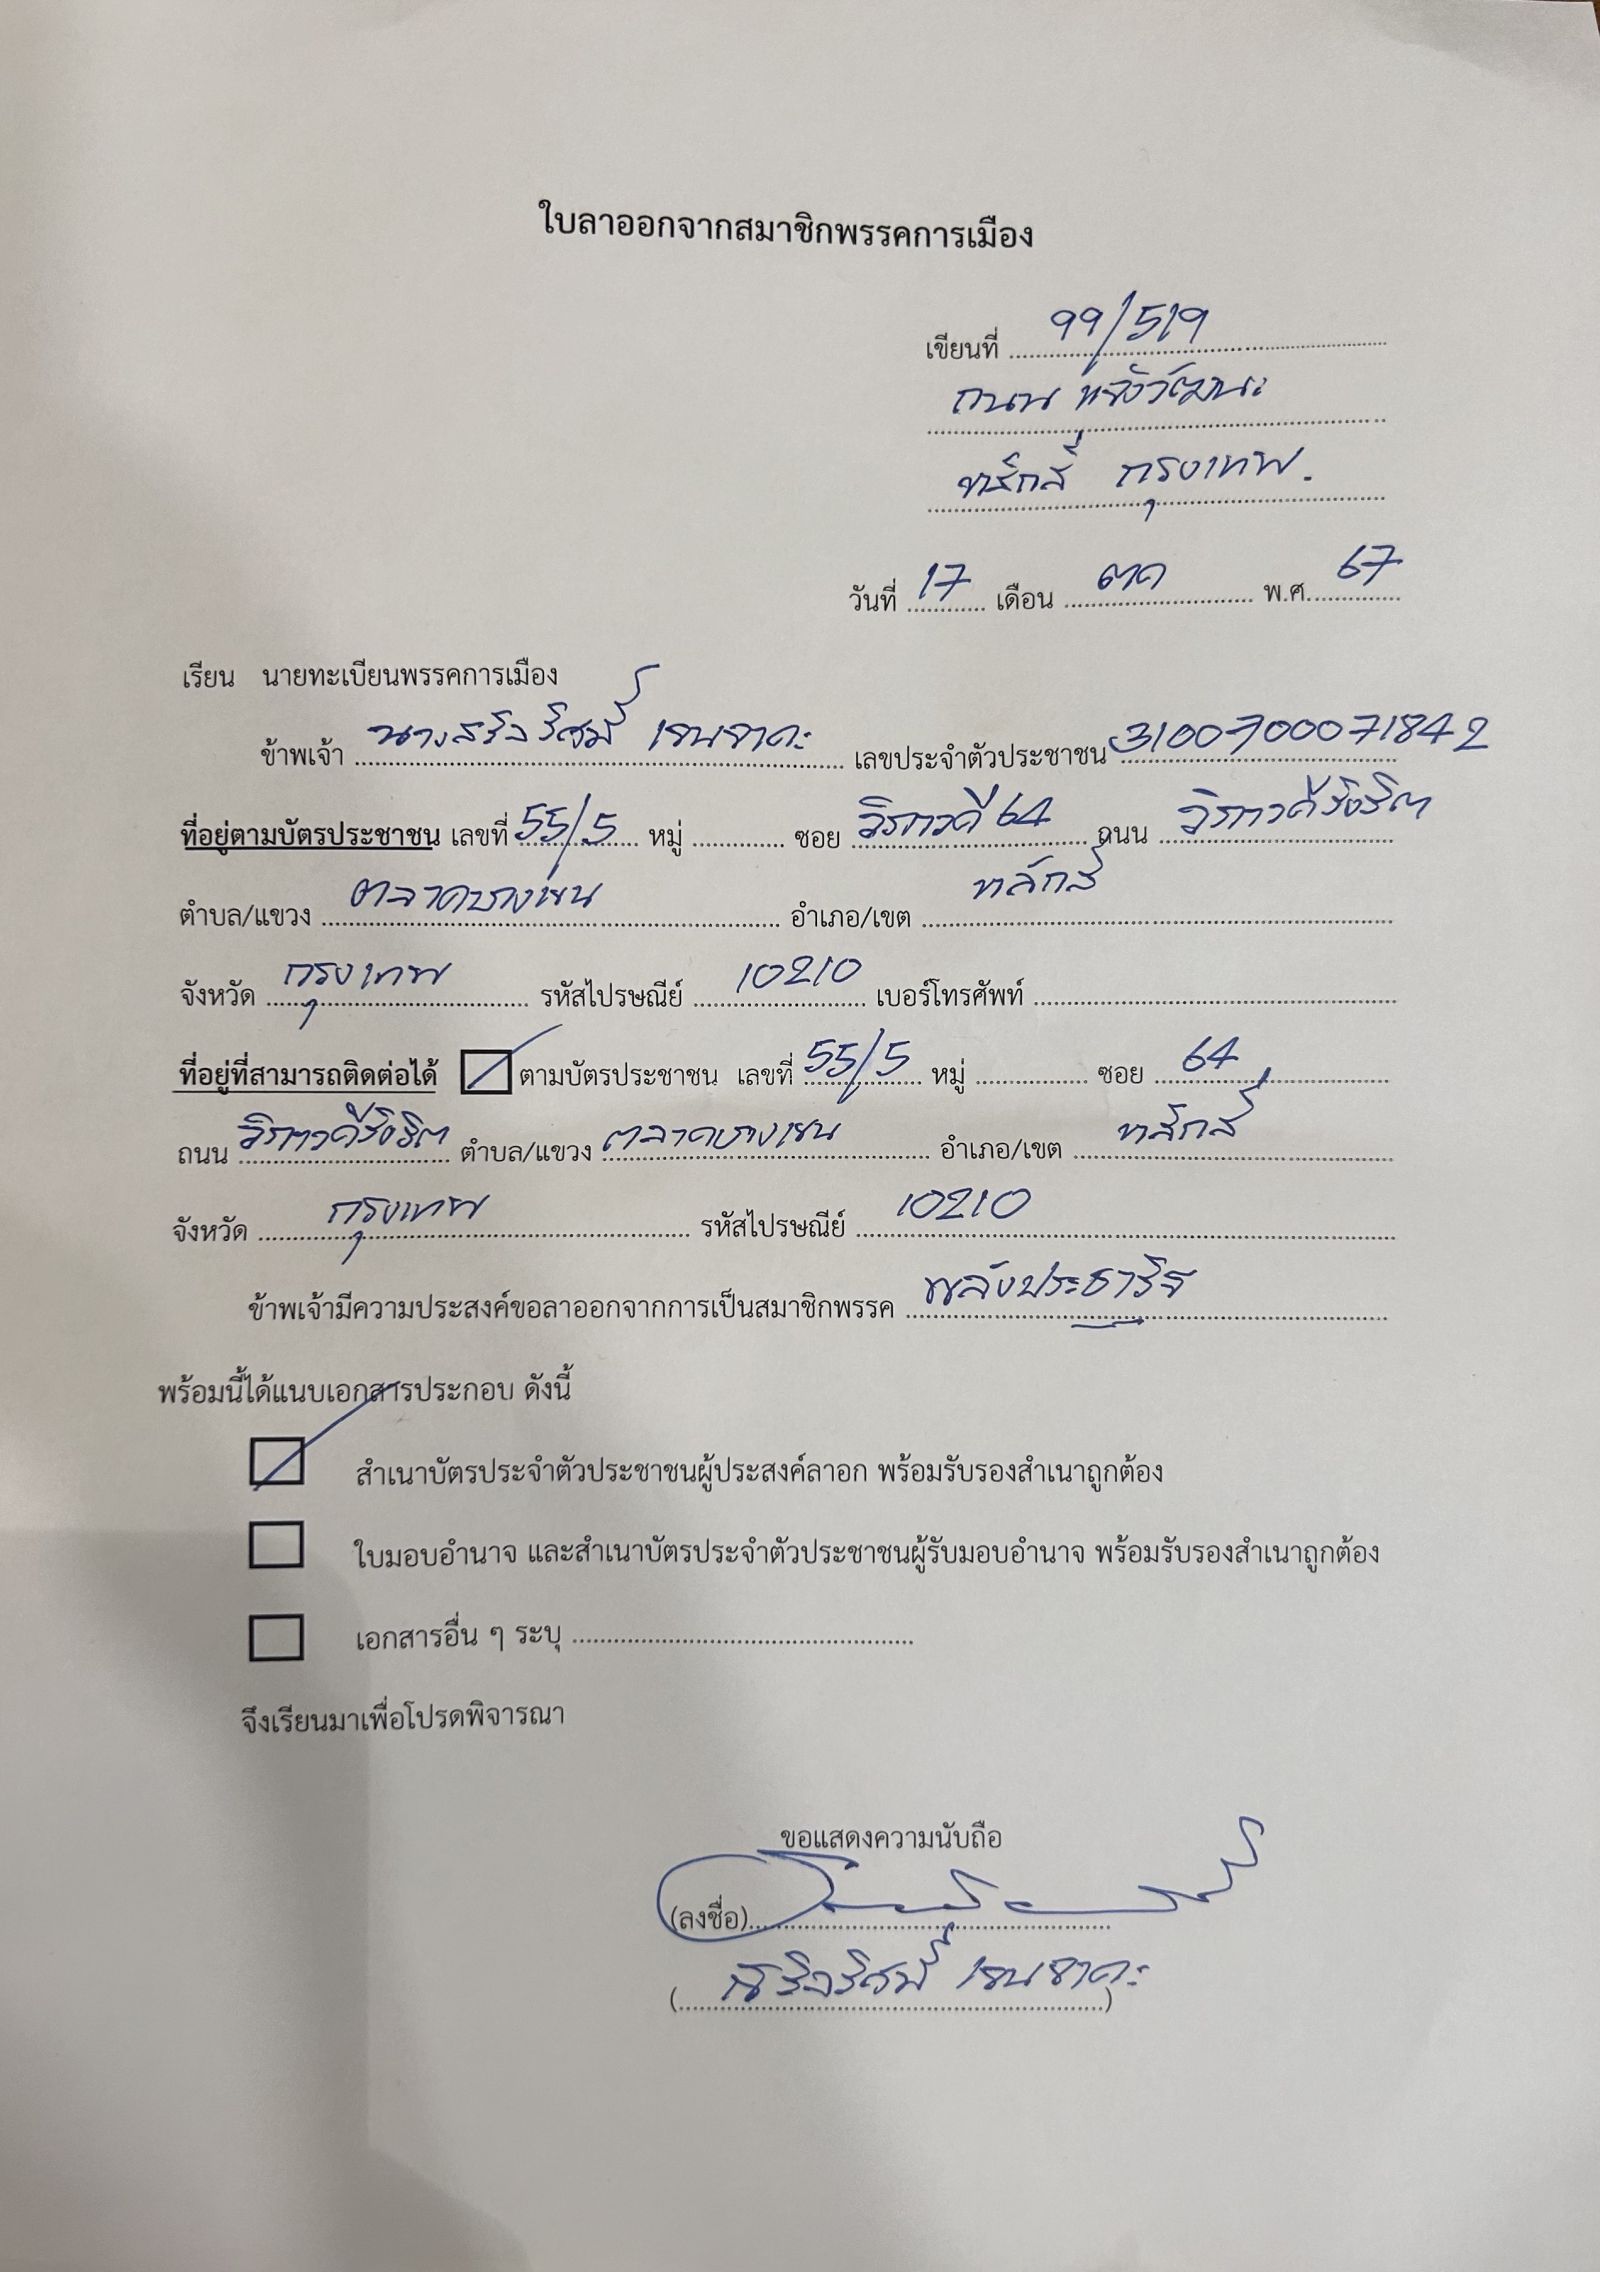 ใบลาออกจากสมาชิกพรรคการเมือง
เขียนที่ 99/519
ถนน แจ้งวัฒนะ
หลักสี่ กรุงเทพ.
วันที่ 17 เดือน ตค พ.ศ. 67
เรียน นายทะเบียนพรรคการเมือง
ข้าพเจ้า เลขประจำตัวประชาชน 3100700071842
ที่อยู่ตามบัตรประชาชน เลขที่ 55/5 หมู่ ซอย วิภาวดี 64 ถนน วิภาวดีรังสิต
ตำบล/แขวง ตลาดบางเขน อำเภอ/เขต หลักสี่
จังหวัด กรุงเทพ รหัสไปรษณีย์ 10210 เบอร์โทรศัพท์
ที่อยู่ที่สามารถติดต่อได้ ตามบัตรประชาชน เลขที่ 55/5 หมู่ ซอย 64
ถนน วิภาวดีรังสิต ตำบล/แขวง ตลาดบางเขน อำเภอ/เขต หลักสี่
จังหวัด กรุงเทพ รหัสไปรษณีย์ 10210
ข้าพเจ้ามีความประสงค์ขอลาออกจากการเป็นสมาชิกพรรค พลังประชารัฐ
พร้อมนี้ได้แนบเอกสารประกอบ ดังนี้
สำเนาบัตรประจำตัวประชาชนผู้ประสงค์ลาอก พร้อมรับรองสำเนาถูกต้อง
ใบมอบอำนาจ และสำเนาบัตรประจำตัวประชาชนผู้รับมอบอำนาจ พร้อมรับรองสำเนาถูกต้อง
เอกสารอื่น ๆ ระบุ
จึงเรียนมาเพื่อโปรดพิจารณา
ขอแสดงความนับถือ
(ลงชื่อ)